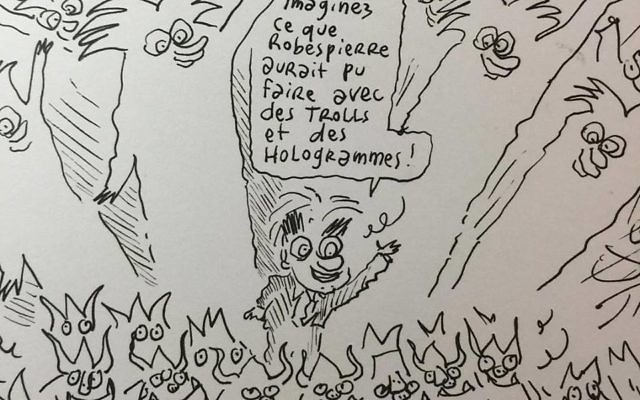 Imaginez
ce que
Robespierre
aurait pu
faire avec
des TROLLS
et des
HOLOGrammes!